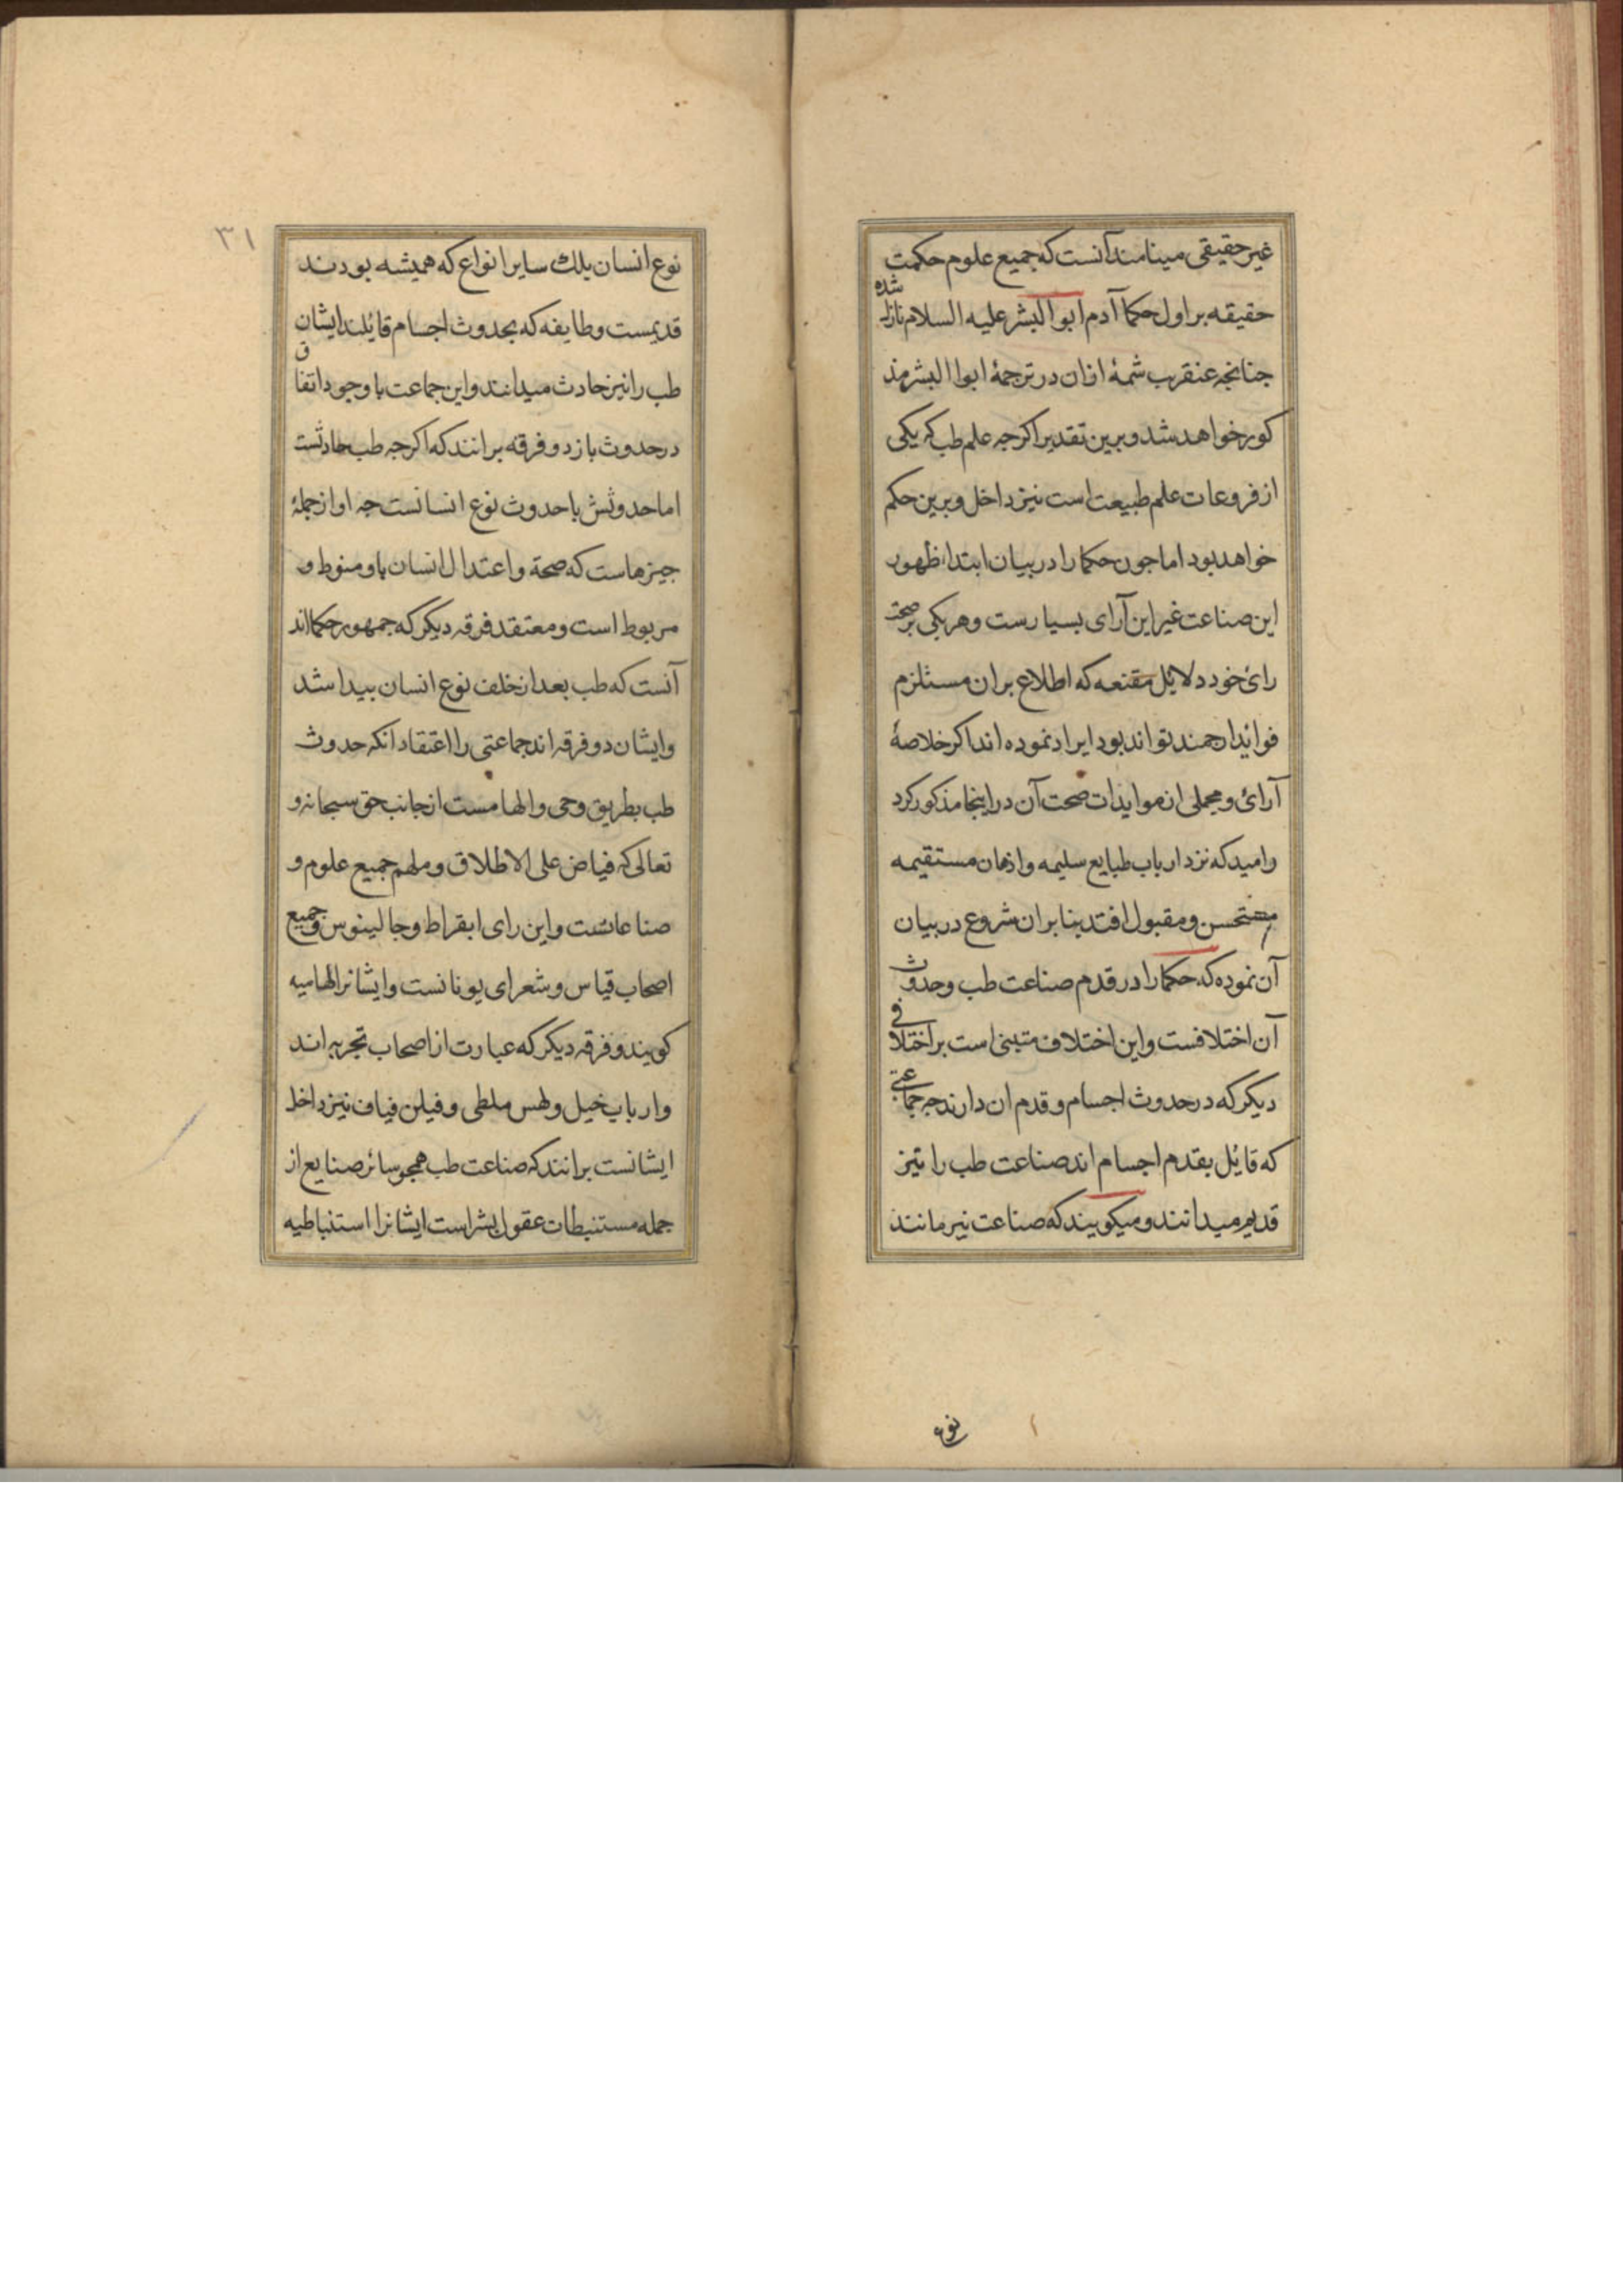 غیر حقیقی مینامند آنست که جمیع علوم حکمت
حقیقه بر اول حکما آدم ابوالبشر علیه السلام نازل شده
جنانجه عنقریب شمهٔ ازان در ترجمهٔ ابواالبشر مذ
کور خواهد شد و برین تقدیر اکرجه علم طب که یکی
از فروعات علم طبیعت است نیز داخل و برین حکم
خواهد بود اما جون حکما را در بیان ابتدا ظهور
این صناعت غیر این آرای بسیارست و هر یکی بر صحت
رائ خود دلایل مقنعه که اطلاع بران مستلزم
فوائد ارجمند تواند بود ایراد نموده اند اکر خلاصهٔ
آرائ و مجملی از موایذات صحت آن در اینجا مذکور کرد
و امید که نزد ارباب طبایع سلیمه و اذهان مستقیمه
مستحسن و مقبول افتد بنا بران شروع در بیان
آن نموده که حکما را در قدم صناعت طب و حدوث
آن اختلافست و این اختلاف متبنی است بر اختلافی
دیکر که در حدوث اجسام و قدم ان دارند جه جماعتی
که قایل بقدم اجسام اند صناعت طب را نیز
قدیم میدانند و میکویند که صناعت نیر مانند
نوع
۳۱
نوع انسان بلک سایر انواع که همیشه بودند
قدیمست و طایفه که بحدوث اجسام قائلند ایشان
طب را نیز حادث میدانند و این جماعت با وجود اتفاق
در حدوث باز دو فرقه برانند که اکرجه طب حادثست
اما حدوثش با حدوث نوع انسانست جه او از جملهٔ
جیزهاست که صحة و اعتدال انسان باو منوط و
مربوط است و معتقد فرقه دیکر که جمهور حکمااند
آنست که طب بعد از خلف نوع انسان بیدا شد
و ایشان دو فرقه اند جماعتی را اعتقاد انکه حدوث
طب بطریق وحی و الهامست از جانب حق سبحانه و
تعالی که فیاض علی الاطلاق و ملهم جمیع علوم و
صناعاتست و این رای ابقراط و جالینوس و جمیع
اصحاب قیاس و شعرای یونانست و ایشانرا الهامیه
کویند و فرقه دیکر که عبارت از اصحاب تجربه اند
و ارباب خیل و لهس ملطی و فیلن فیاف نیز داخل
ایشانست برانند که صناعت طب همجو سائر صنایع از
جمله مستنبطات عقول بشر است ایشانرا استنباطیه